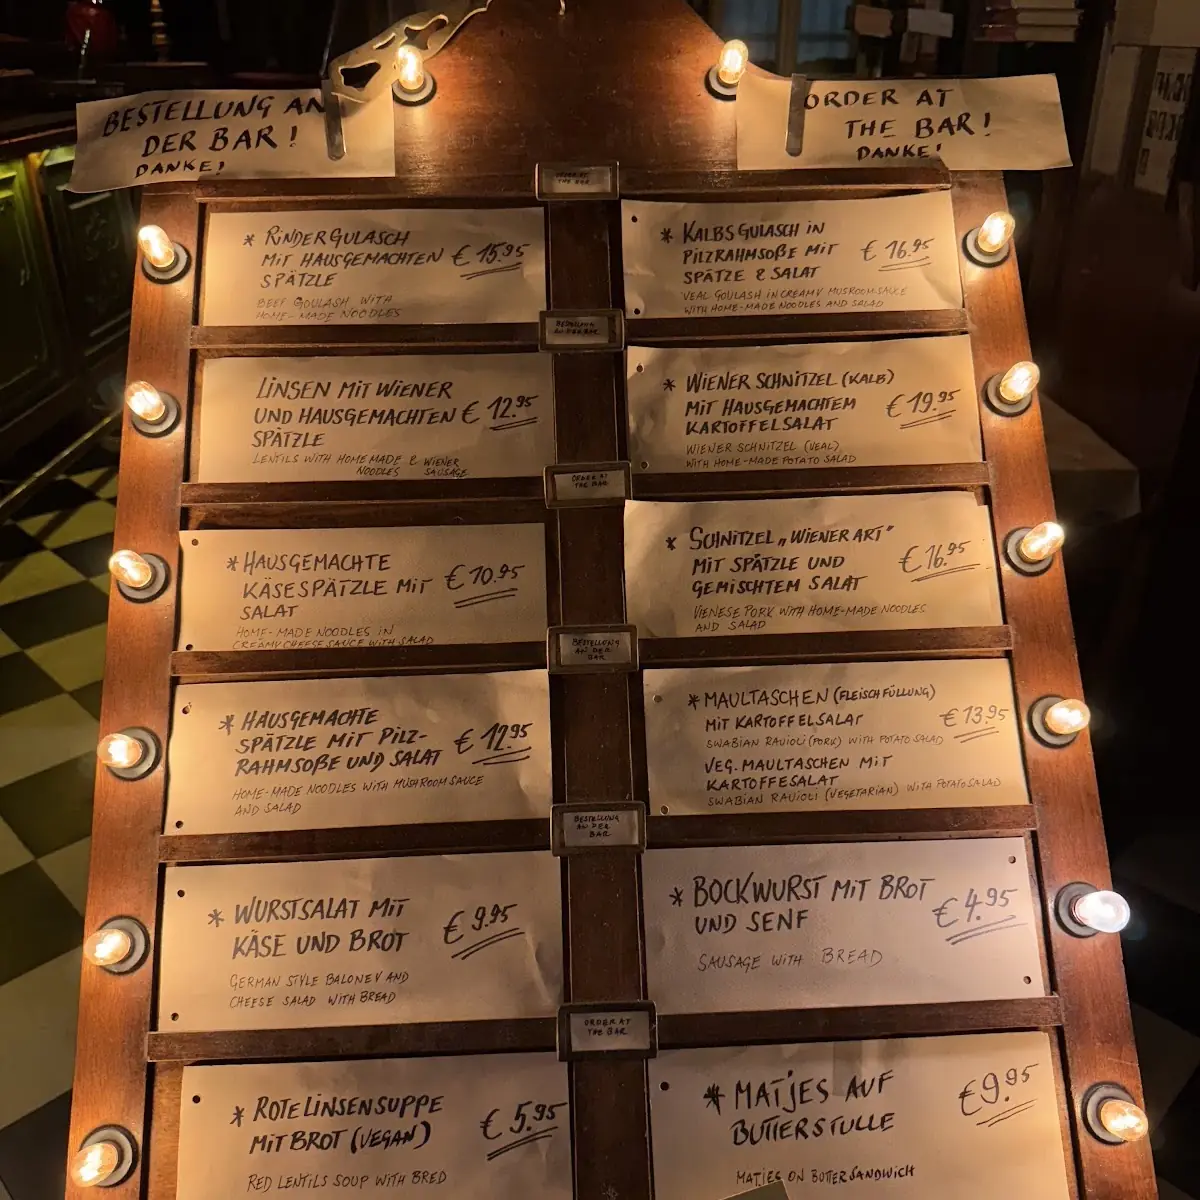 BESTELLUNG AN
DER BAR!
DANKE!
ORDER AT
THE BAR!
DANKE!
ORDER AT
THE BAR
* RINDERGULASCH
MIT HAUSGEMACHTEN € 15.95
SPÄTZLE
BEEF GOULASH WITH
HOME-MADE NOODLES
* KALBSGULASCH IN
PILZRAHMSOßE MIT € 16.95
SPÄTZE & SALAT
VEAL GOULASH IN CREAMY MUSROOM SAUCE
WITH HOME-MADE NOODLES AND SALAD
BESTELLUNG
AN DER BAR
LINSEN MIT WIENER
UND HAUSGEMACHTEN € 12.95
SPÄTZLE
LENTILS WITH HOME MADE & WIENER
NOODLES SAUSAGE
* WIENER SCHNITZEL (KALB)
MIT HAUSGEMACHTEM € 19.95
KARTOFFELSALAT
WIENER SCHNITZEL (VEAL)
WITH HOME-MADE POTATO SALAD
ORDER AT
THE BAR
* HAUSGEMACHTE
KÄSESPÄTZLE MIT € 10.95
SALAT
HOME-MADE NOODLES IN
CREAMY CHEESE SAUCE WITH SALAD
* SCHNITZEL „WIENER ART"
MIT SPÄTZLE UND € 16.95
GEMISCHTEM SALAT
VIENESE PORK WITH HOME-MADE NOODLES
AND SALAD
BESTELLUNG
AN DER
BAR
* HAUSGEMACHTE
SPÄTZLE MIT PILZ- € 12.95
RAHMSOßE UND SALAT
HOME-MADE NOODLES WITH MUSHROOM SAUCE
AND SALAD
* MAULTASCHEN (FLEISCHFÜLLUNG)
MIT KARTOFFELSALAT € 13.95
SWABIAN RAVIOLI (PORK) WITH POTATO SALAD
VEG. MAULTASCHEN MIT
KARTOFFESALAT
SWABIAN RAVIOLI (VEGETARIAN) WITH POTATO SALAD
BESTELLUNG
AN DER
BAR
* WURSTSALAT MIT € 9.95
KÄSE UND BROT
GERMAN STYLE BALONEY AND
CHEESE SALAD WITH BREAD
* BOCKWURST MIT BROT € 4.95
UND SENF
SAUSAGE WITH BREAD
ORDER AT
THE BAR
* ROTE LINSENSUPPE € 5.95
MIT BROT (VEGAN)
RED LENTILS SOUP WITH BRED
* MATJES AUF € 9.95
BUTTERSTULLE
MATJES ON BUTTERSANDWICH